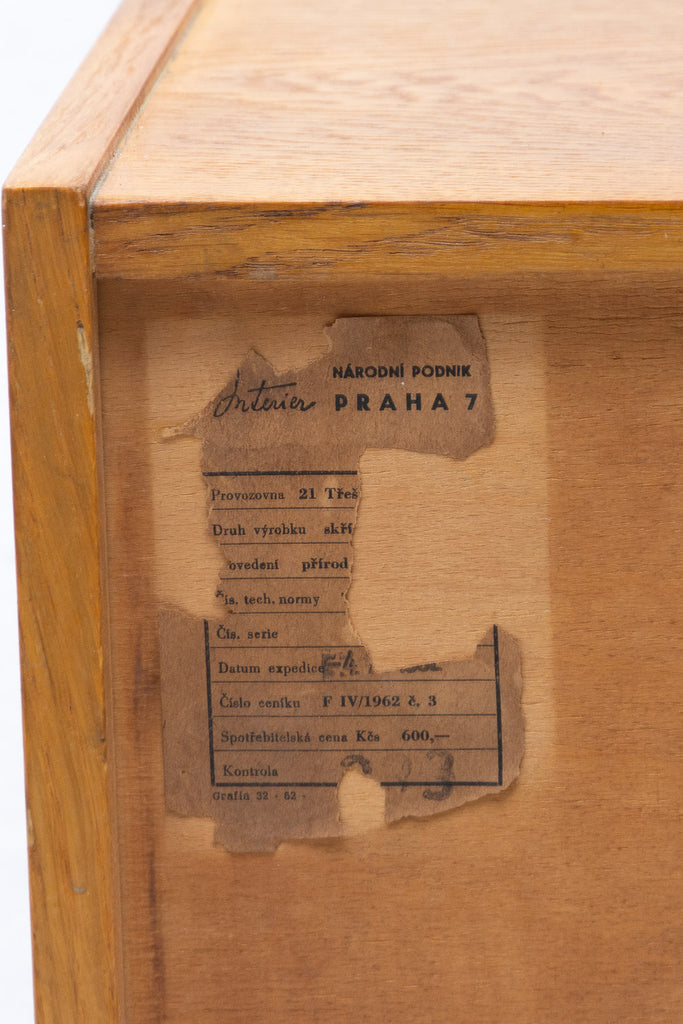 NÁRODNÍ PODNIK
Interier PRAHA 7
Provozovna 21 Třeš
Druh výrobku skří
ovedení přírod
is. tech. normy
Čís. serie
Datum expedice
Číslo ceníku F IV/1962 č. 3
Spotřebitelská cena Kčs 600,—
Kontrola
Grafia 32 - 62 -